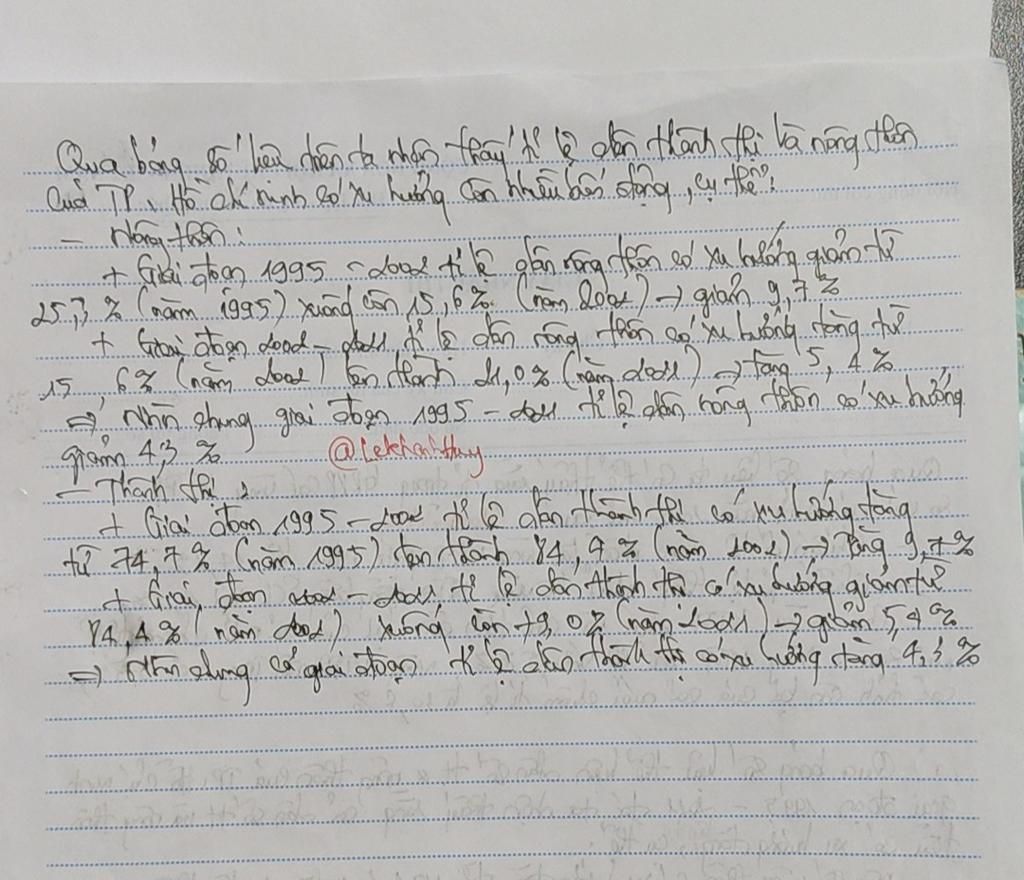 Qua bảng số liệu trên ta nhận thấy tỉ lệ dân thành thị và nông thôn
của TP. Hồ Chí minh có xu hướng còn nhiều biến động, cụ thể:
- Nông thôn:
+ Giai đoạn 1995 - 2002 tỉ lệ dân nông thôn có xu hướng giảm từ
25,3 % (năm 1995) xuống còn 15,6 % (năm 2002) → giảm 9,7 %
+ Giai đoạn 2002 - 2021 tỉ lệ dân nông thôn có xu hướng tăng từ
15,6 % (năm 2002) lên thành 21,0 % (năm 2021) → tăng 5,4 %
⇒ Nhìn chung giai đoạn 1995 - 2021 tỉ lệ dân nông thôn có xu hướng
giảm 4,3 %
@lekhanhhuy
- Thành thị:
+ Giai đoạn 1995 - 2002 tỉ lệ dân thành thị có xu hướng tăng
từ 74,7 % (năm 1995) lên thành 84,4 % (năm 2002) → tăng 9,7 %
+ Giai đoạn 2002 - 2021 tỉ lệ dân thành thị có xu hướng giảm từ
84,4 % (năm 2002) xuống còn 79,0 % (năm 2021) → giảm 5,4 %
⇒ Nhìn chung cả giai đoạn tỉ lệ dân thành thị có xu hướng tăng 4,3 %